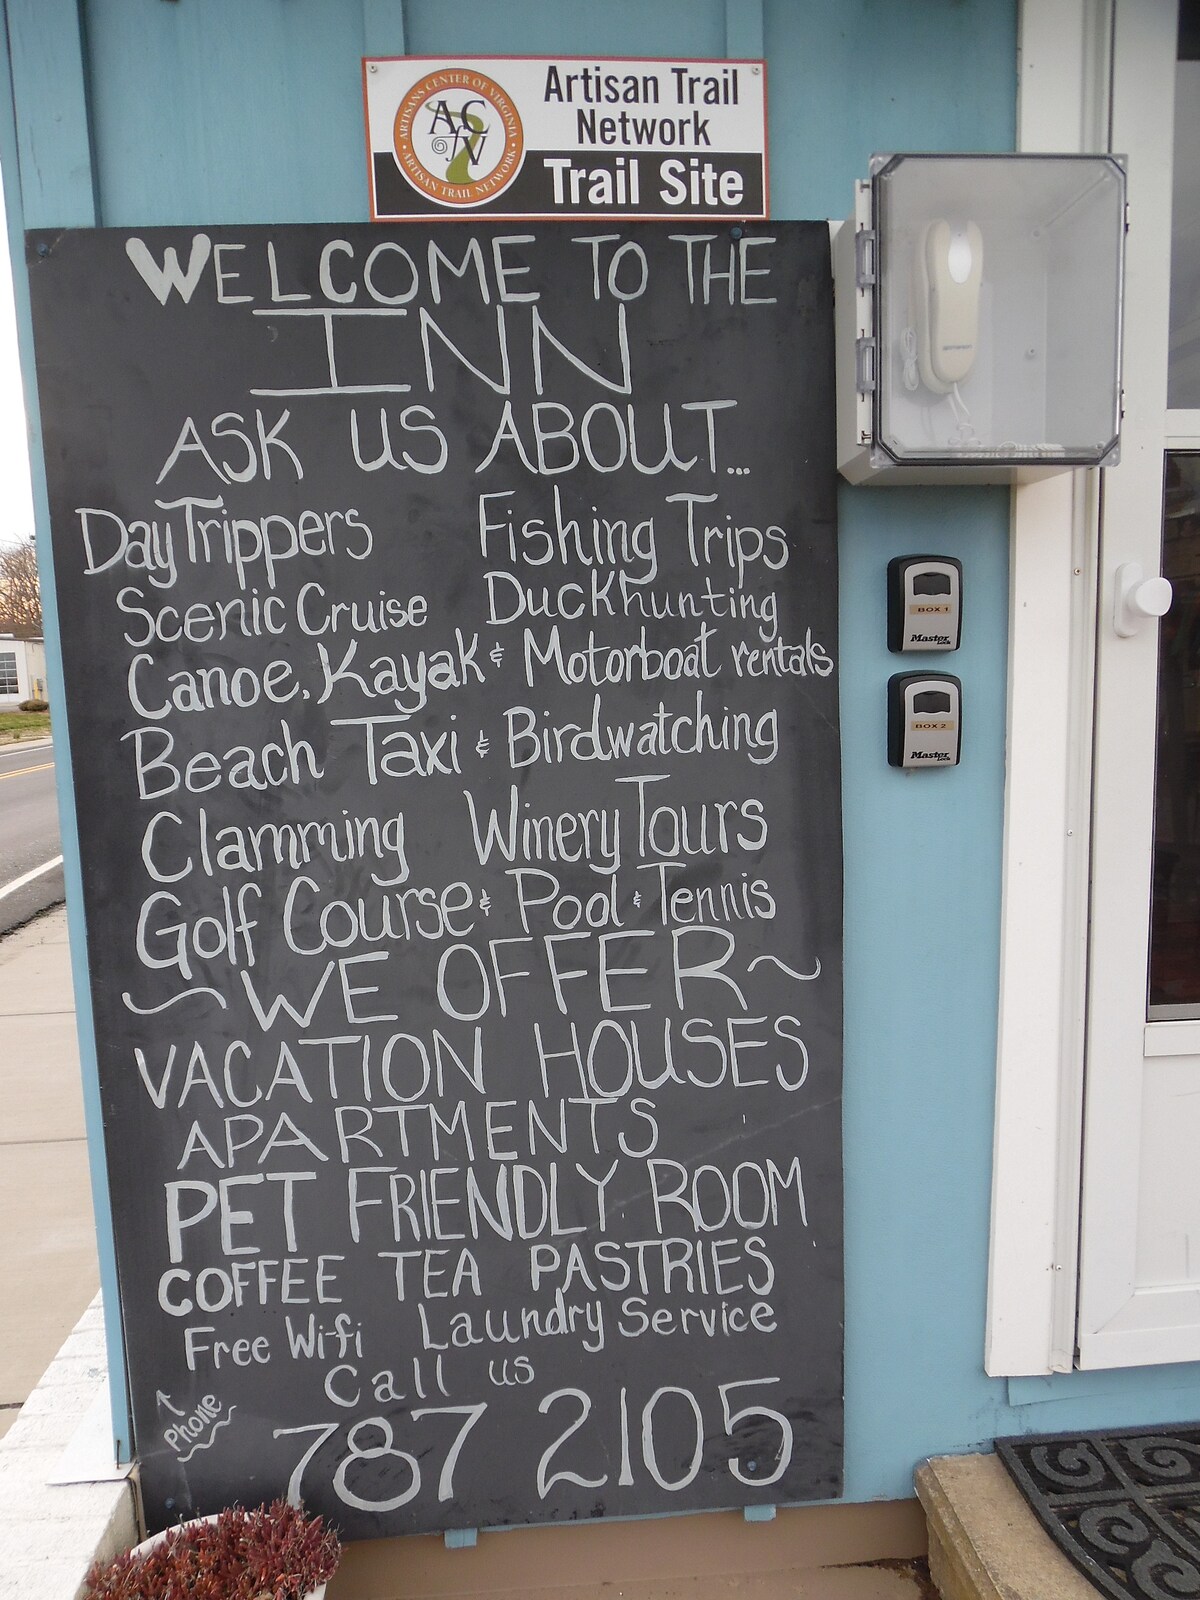 ARTISANS CENTER OF VIRGINIA
ACfV
ARTISAN TRAIL NETWORK
Artisan Trail
Network
Trail Site
WELCOME TO THE
INN
ASK US ABOUT...
DayTrippers Fishing Trips
Scenic Cruise Duckhunting
Canoe, Kayak & Motorboat rentals
Beach Taxi & Birdwatching
Clamming Winery Tours
Golf Course & Pool & Tennis
~WE OFFER~
VACATION HOUSES
APARTMENTS
PET FRIENDLY ROOM
COFFEE TEA PASTRIES
Free Wi-fi Laundry Service
Call us
Phone
787 2105
BOX 1
Master
Lock
BOX 2
Master
Lock